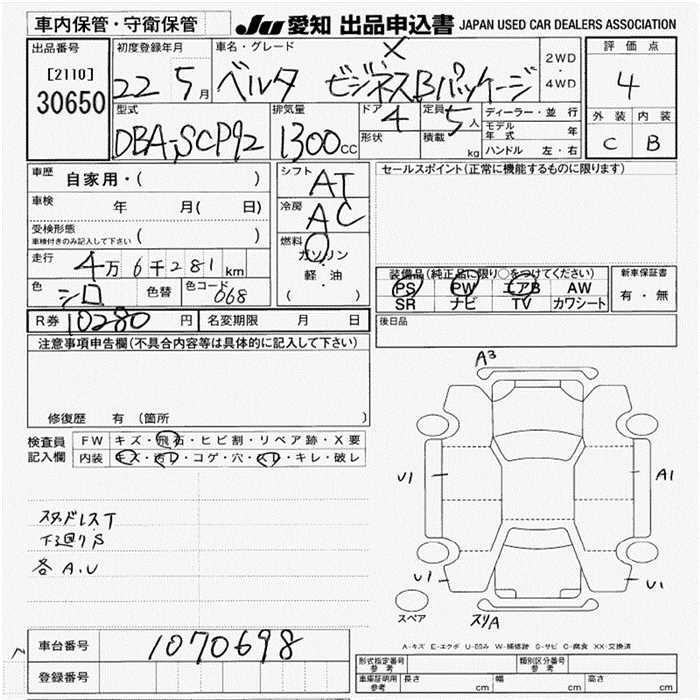 車内保管・守衛保管 JU 愛知 出品申込書 JAPAN USED CAR DEALERS ASSOCIATION
出品番号 初度登録年月 車名・グレード 評価点
[2110] 22 5月 ベルタ X ビジネスBパッケージ 2WD・4WD 4
30650
型式 排気量 ドア 4 定員 5人 ディーラー・並行 外装 内装
DBA-SCP92 1300cc 形状 積載 kg モデル年式 年 C B
ハンドル 左・右
車歴 自家用・( ) シフト AT セールスポイント(正常に機能するものに限ります)
車検 年 月( 日) 冷房 AC
受検形態 ( )
車検付きのみ記入して下さい
燃料 ガソリン・軽油 ( )
走行 4万6千281km
色 シロ 色替 色コード 068
装備品(純正品に限り○をつけてください) 新車保証書
PS PW エアB AW 有・無
SR ナビ TV カワシート
R券 10280円 名変期限 月 日 後日品
注意事項申告欄(不具合内容等は具体的に記入して下さい)
修復歴 有(箇所
検査員記入欄 FW キズ・飛石・ヒビ割・リペア跡・X要
内装 キズ・汚レ・コゲ・穴・スレ・キレ・破レ
A3
U1
A1
スタッドレスT
下廻りS
各A.U
U1
U1
スリA
スペア
A-キズ E-エクボ U-凹み W-補修跡 S-サビ C-腐食 XX-交換済
車台番号 1070698
登録番号
形式指定番号 参考 類別区分番号 参考
車庫証明用 参考 長さ cm 幅 cm 高さ cm